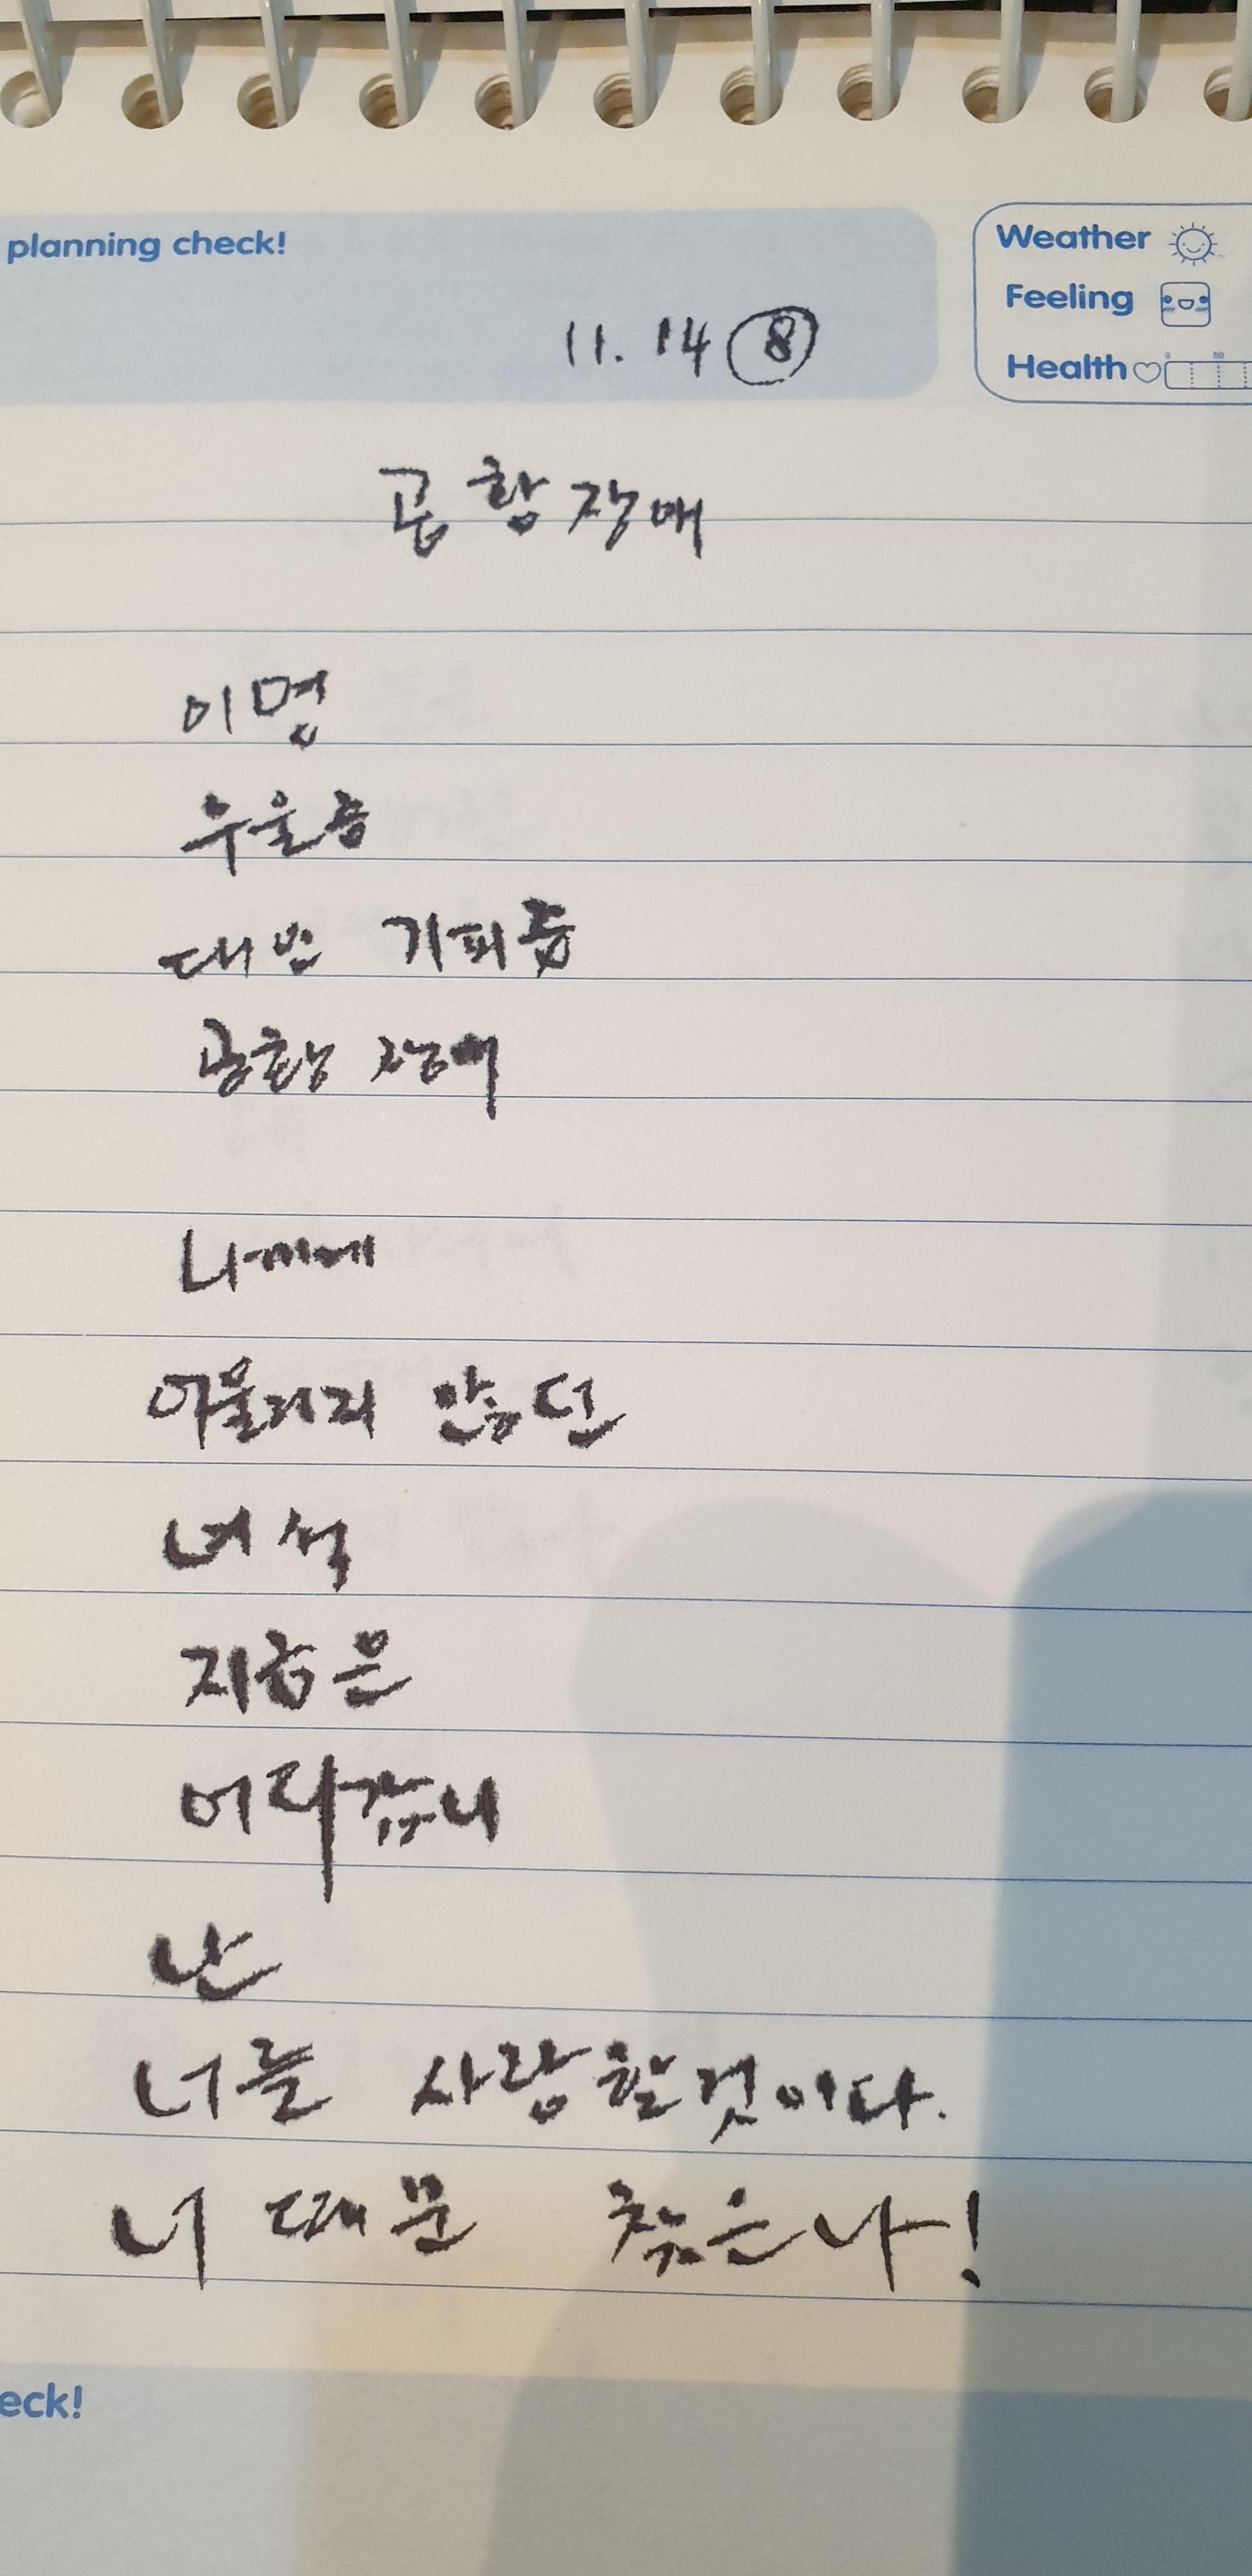 planning check!
Weather
Feeling
11. 14 ⑧
Health
공황장애
이명
우울증
대인 기피증
공황 장애
나에게
어울리지 않는던
녀석
지금은
어디갔니
난
너를 사랑할것이다.
너 때문 찾은나!
eck!